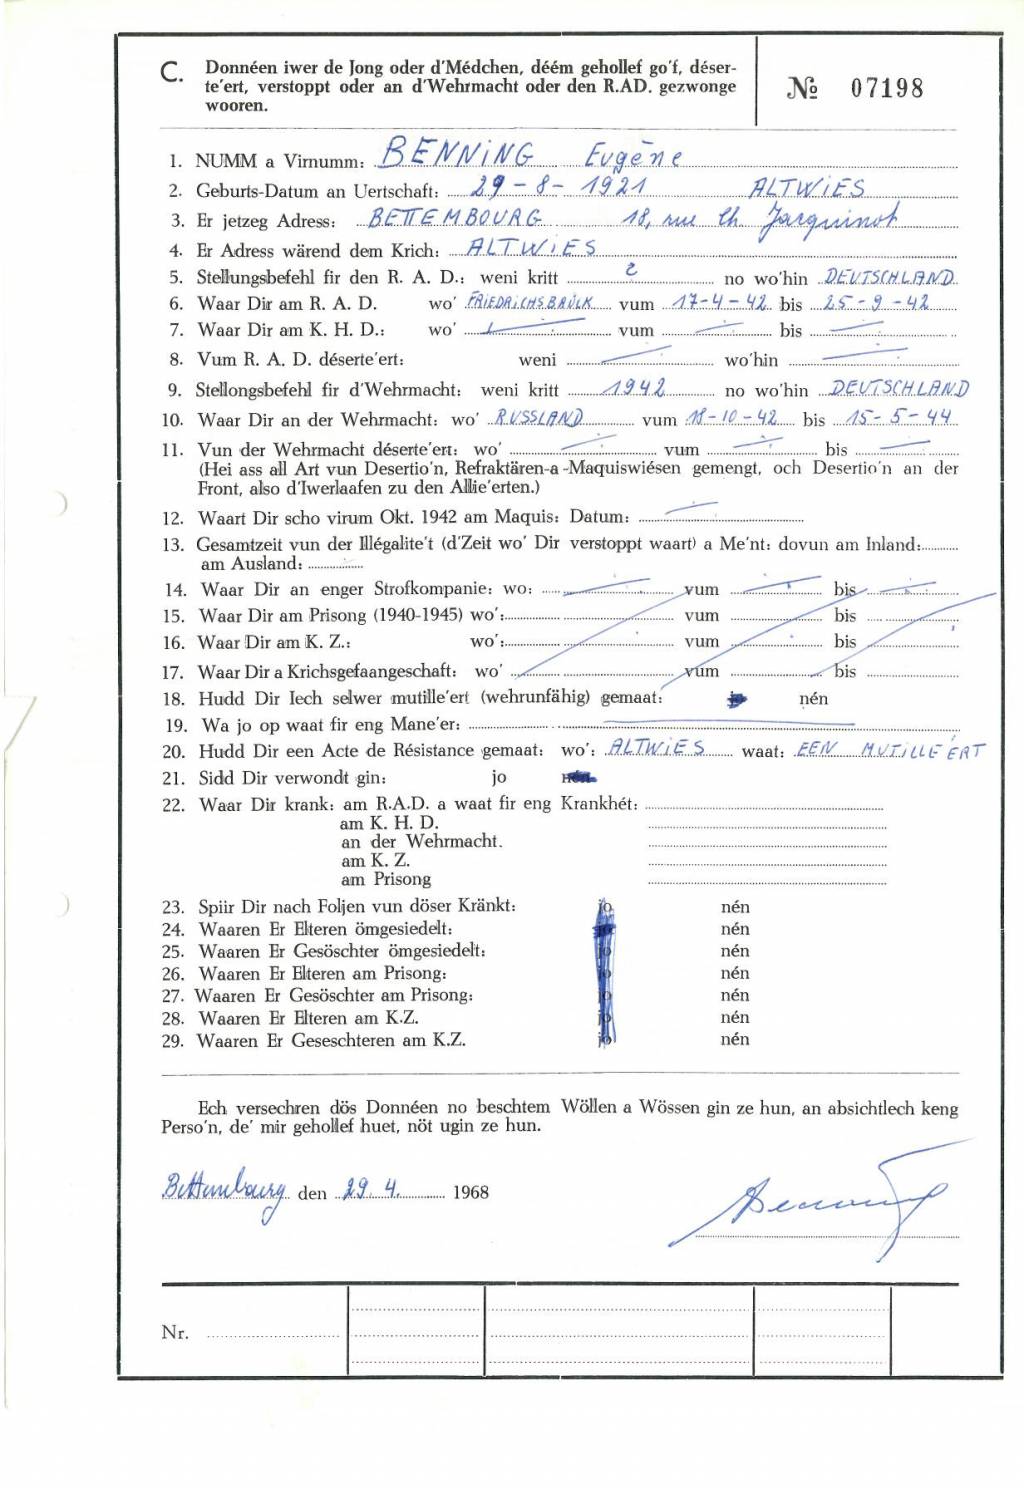 C. Donnéen iwer de Jong oder d'Médchen, déém gehollef go'f, déser-
te'ert, verstoppt oder an d'Wehrmacht oder den R.AD. gezwonge
wooren.
№ 07198
1. NUMM a Virnumm: BENNING Eugène
2. Geburts-Datum an Uertschaft: 29-8-1921 ALTWIES
3. Er jetzeg Adress: BETTEMBOURG 18, rue Ch. Jacquinot
4. Er Adress wärend dem Krich: ALTWIES
5. Stellungsbefehl fir den R. A. D.: weni kritt ? no wo'hin DEUTSCHLAND
6. Waar Dir am R. A. D. wo' FRIEDRICHSBRUCK vum 17-4-42 bis 25-9-42
7. Waar Dir am K. H. D.: wo' vum bis
8. Vum R. A. D. déserte'ert: weni wo'hin
9. Stellongsbefehl fir d'Wehrmacht: weni kritt 1942 no wo'hin DEUTSCHLAND
10. Waar Dir an der Wehrmacht: wo' RUSSLAND vum 18-10-42 bis 15-5-44
11. Vun der Wehrmacht déserte'ert: wo' vum bis
(Hei ass all Art vun Desertio'n, Refraktären-a-Maquiswiésen gemengt, och Desertio'n an der
Front, also d'Iwerlaafen zu den Allie'erten.)
12. Waart Dir scho virum Okt. 1942 am Maquis: Datum:
13. Gesamtzeit vun der Illégalite't (d'Zeit wo' Dir verstoppt waart) a Me'nt: dovun am Inland:
am Ausland:
14. Waar Dir an enger Strofkompanie: wo: vum bis
15. Waar Dir am Prisong (1940-1945) wo': vum bis
16. Waar Dir am K. Z.: wo': vum bis
17. Waar Dir a Krichsgefaangeschaft: wo' vum bis
18. Hudd Dir Iech selwer mutille'ert (wehrunfähig) gemaat: jo nén
19. Wa jo op waat fir eng Mane'er:
20. Hudd Dir een Acte de Résistance gemaat: wo': ALTWIES waat: EEN MUTILLE'ERT
21. Sidd Dir verwondt gin: jo nén
22. Waar Dir krank: am R.A.D. a waat fir eng Krankhét:
am K. H. D.
an der Wehrmacht.
am K. Z.
am Prisong
23. Spiir Dir nach Foljen vun döser Kränkt: jo nén
24. Waaren Er Elteren ömgesiedelt: jo nén
25. Waaren Er Gesöschter ömgesiedelt: jo nén
26. Waaren Er Elteren am Prisong: jo nén
27. Waaren Er Gesöschter am Prisong: jo nén
28. Waaren Er Elteren am K.Z. jo nén
29. Waaren Er Geseschteren am K.Z. jo nén
Ech versechren dös Donnéen no beschtem Wöllen a Wössen gin ze hun, an absichtlech keng
Perso'n, de' mir gehollef huet, nöt ugin ze hun.
Bettembourg den 29.4. 1968
Benning
Nr.